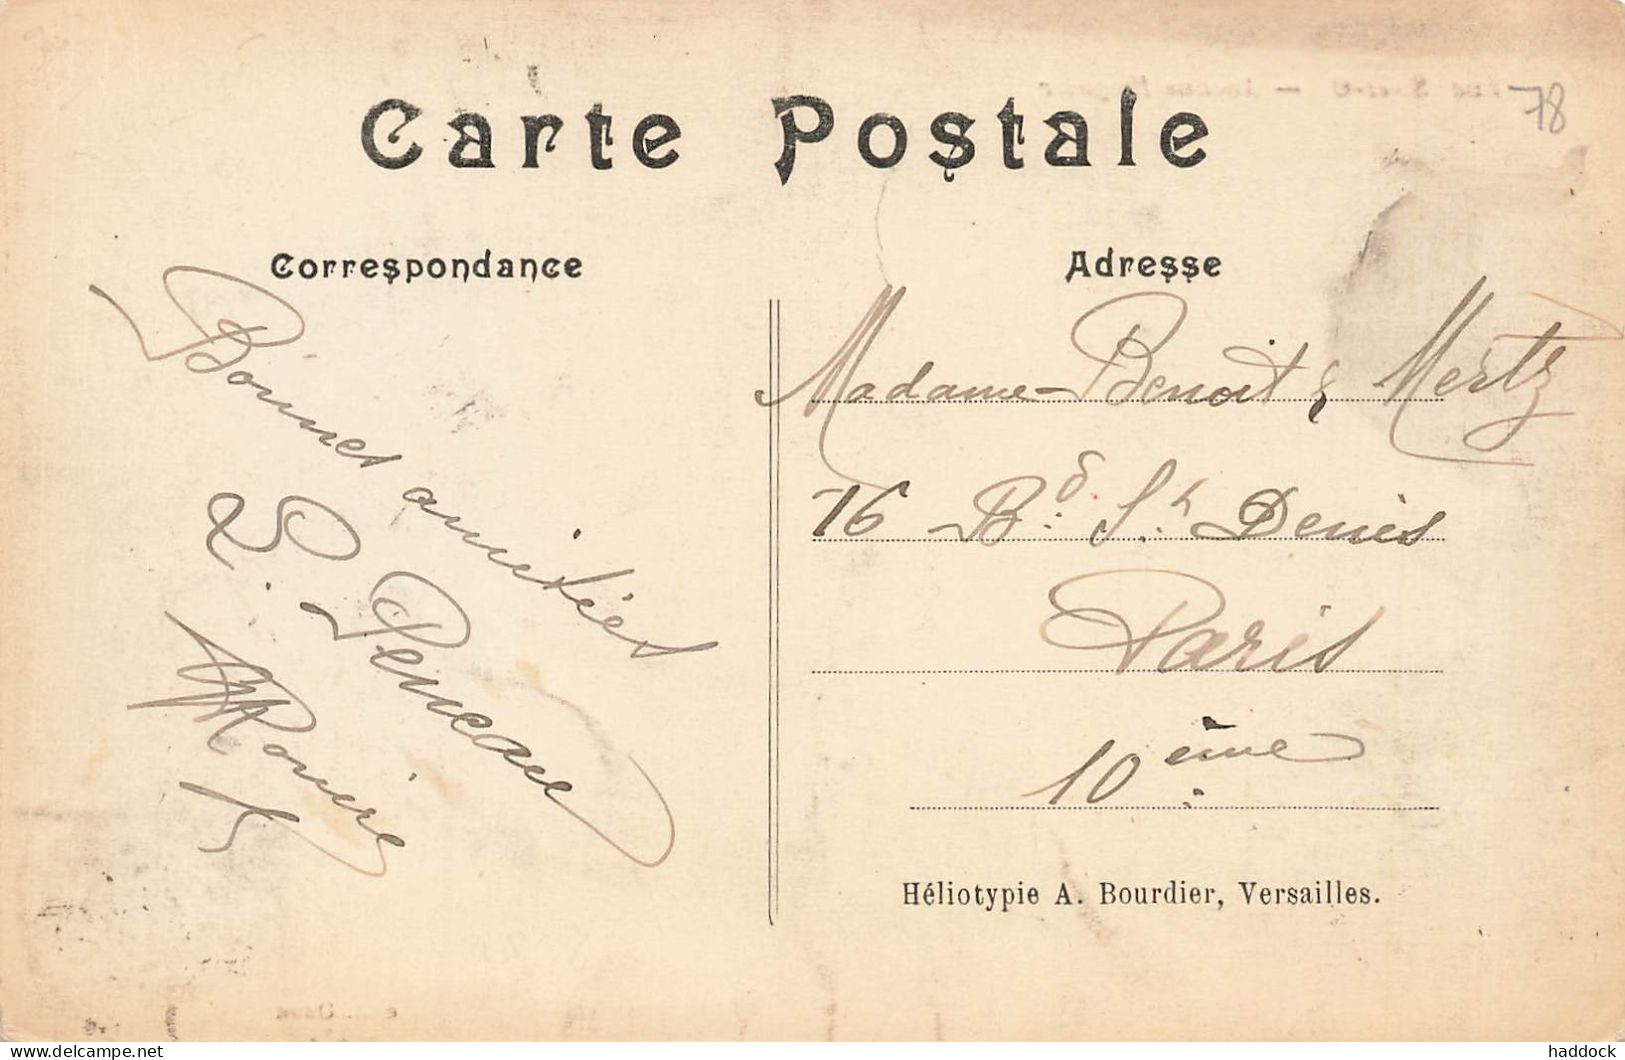 Carte Postale
78
Correspondance
Bonnes amitiés
L. Peneau
Adresse
Madame Benoit & Mertz
76 Bd. St Denis
Paris
10ème
Héliotypie A. Bourdier, Versailles.
delcampe.net
haddock